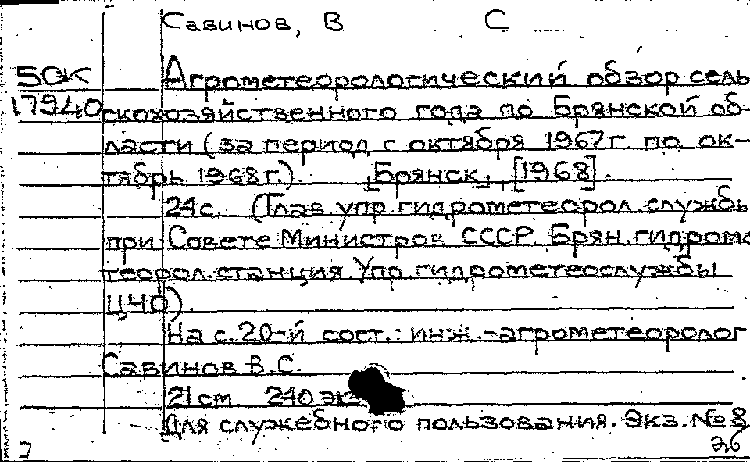 Савинов, В С
50К Агрометеорологический обзор сель-
17940 скохозяйственного года по Брянской об-
ласти (за период с октября 1967 г. по ок-
тябрь 1968 г.). [Брянск], [1968].
24 с. (Глав. упр. гидрометеорол. службы
при Совете Министров СССР. Брян. гидроме-
теорол. станция. Упр. гидрометеослужбы
ЦЧО).
На с. 20-й сост.: инж.-агрометеоролог
Савинов В.С.
21 см 240 эк
Для служебного пользования. Экз. № 8